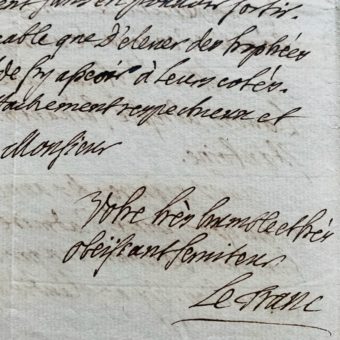 sans en pouvoir sortir.
que D'elever des trophées
de s'y asseoir à leurs cotés.
attachement respectueux et
Monsieur
Votre très humble et très
obeissant serviteur
Le Franc